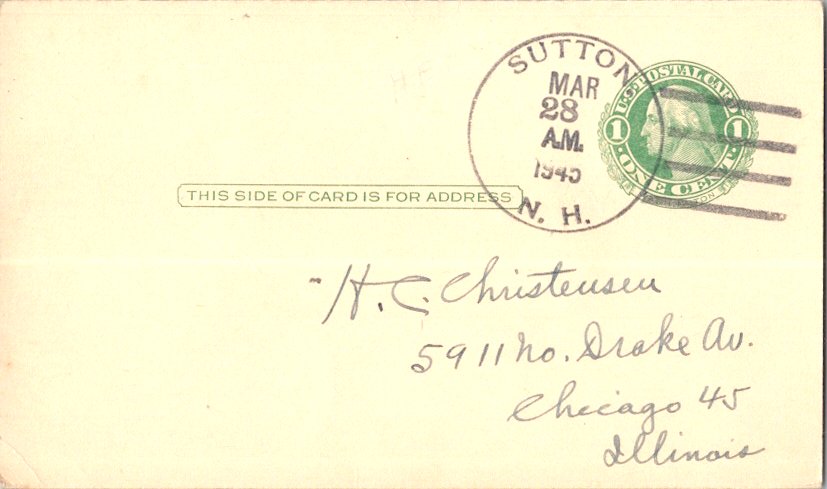 SUTTON
MAR
28
A.M.
1945
N. H.
U·S·POSTAL CARD
1 1
·ONE CENT·
THIS SIDE OF CARD IS FOR ADDRESS
H. C. Christensen
5911 No. Drake Av.
Chicago 45
Illinois